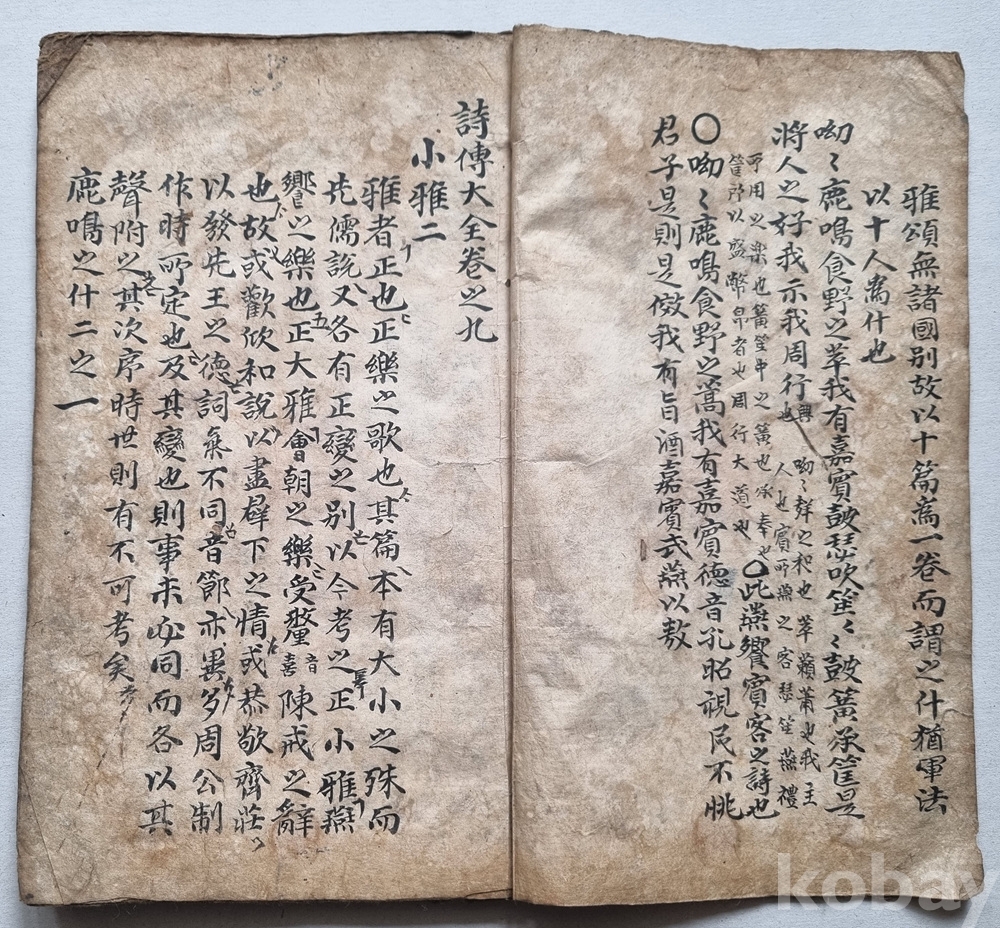 詩傳大全卷之九
小雅二
雅者正也正樂之歌也其篇本有大小之殊而
先儒說又各有正變之別以今考之正小雅燕
饗之樂也正大雅會朝之樂受釐音喜陳戒之辭
也故或歡欣和說以盡群下之情或恭敬齊莊
以發先王之德詞氣不同音節亦異多周公制
作時所定也及其變也則事未必同而各以其
聲附之其次序時世則有不可考矣
鹿鳴之什二之一
雅頌無諸國別故以十篇為一卷而謂之什猶軍法
以十人為什也
呦〻鹿鳴食野之苹我有嘉賓鼓瑟吹笙〻鼓簧承筐是
將人之好我示我周行
興也
呦〻聲之和也苹藾蕭也我主
人也賓所燕之客瑟笙燕禮
所用之樂也簧笙中之簧也承奉也
筐所以盛幣帛者也周行大道也
○此燕饗賓客之詩也
○呦〻鹿鳴食野之蒿我有嘉賓德音孔昭視民不恌
君子是則是傚我有旨酒嘉賓式燕以敖
kobay